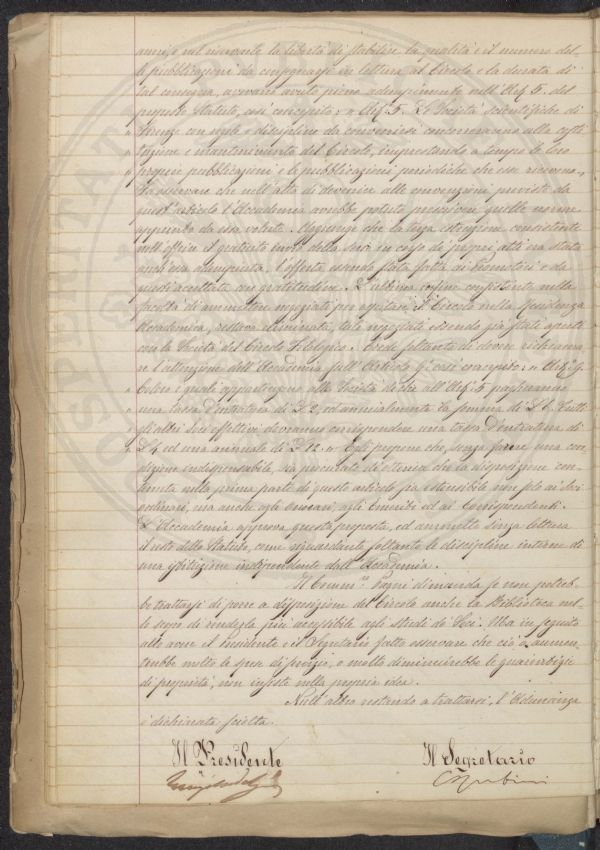 anni, e nel riservarle la libertà di stabilire la qualità e il numero del-
le pubblicazioni da consegnarsi in lettura al Circolo e la durata di
tal consegna, avevano avuto pieno adempimento nell'Art. 5. del
proposto Statuto, così concepito: « Art. 5. Le Società scientifiche di
Firenze con regole e discipline da convenirsi concorreranno alla costi-
tuzione e mantenimento del Circolo, imprestando a tempo le loro
proprie pubblicazioni e le pubblicazioni periodiche che esse ricevono »
Fa osservare che nell'atto di devenire alle convenzioni previste da
quest'articolo l'Accademia avrebbe potuto prescrivere quelle norme
appunto da essa volute. Aggiunge che la terza istruzione consistente
nell'offrire il gratuito invio della serie in corso dei propri atti era stata
anch'essa adempiuta, l'offerta essendo stata fatta ai Promotori e da
questi accettata con gratitudine. L'ultima infine consistente nella
facoltà di ammettere negoziati per ospitare il Circolo nella Residenza
Accademica, restava eliminata, tali negoziati essendo già stati aperti
con la Società del Circolo Filologico. Crede soltanto di dovere richiama-
re l'attenzione dell'Accademia sull'Articolo 9° così concepito: « Art. 9.
Coloro i quali appartengono alle Società de che all'Art. 5 pagheranno
una tassa d'entratura di £ 2, ed annualmente la somma di £ 6. Tutti
gli altri Soci effettivi dovranno corrispondere una tassa d'entratura di
£ 4 ed una annuale di £ 12. » Egli propone che, senza farne una con-
dizione indispensabile, sia procurato di ottenere che la disposizione con-
tenuta nella prima parte di questo articolo sia estensibile non solo ai Soci
ordinari, ma anche agli Onorari, agli Emeriti ed ai Corrispondenti.
L'Accademia approva questa proposta, ed ammette senza lettura
il resto dello Statuto, come riguardante soltanto le discipline interne di
una istituzione indipendente dall'Accademia.
Il Comm.re Pagni dimanda se non potreb-
be trattarsi di porre a disposizione del Circolo anche la Biblioteca nel-
lo scopo di renderla più accessibile agli studi dei Soci. Ma in seguito
allo avere il Presidente e il Segretario fatto osservare che ciò aumen-
terebbe molto le spese di servizio, e molto diminuirebbe le guarentigie
di proprietà, non insiste nella propria idea.
Null'altro restando a trattarsi, l'Adunanza
è dichiarata sciolta.
Il Presidente
Il Segretario